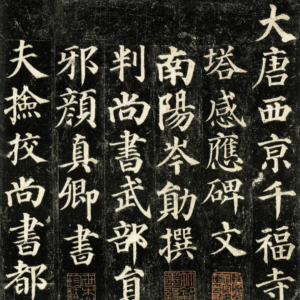 大唐西亰千福寺
塔感應碑文
南陽岑勛撰
判尚書武部員
邪顔真卿書
夫撿校尚書都